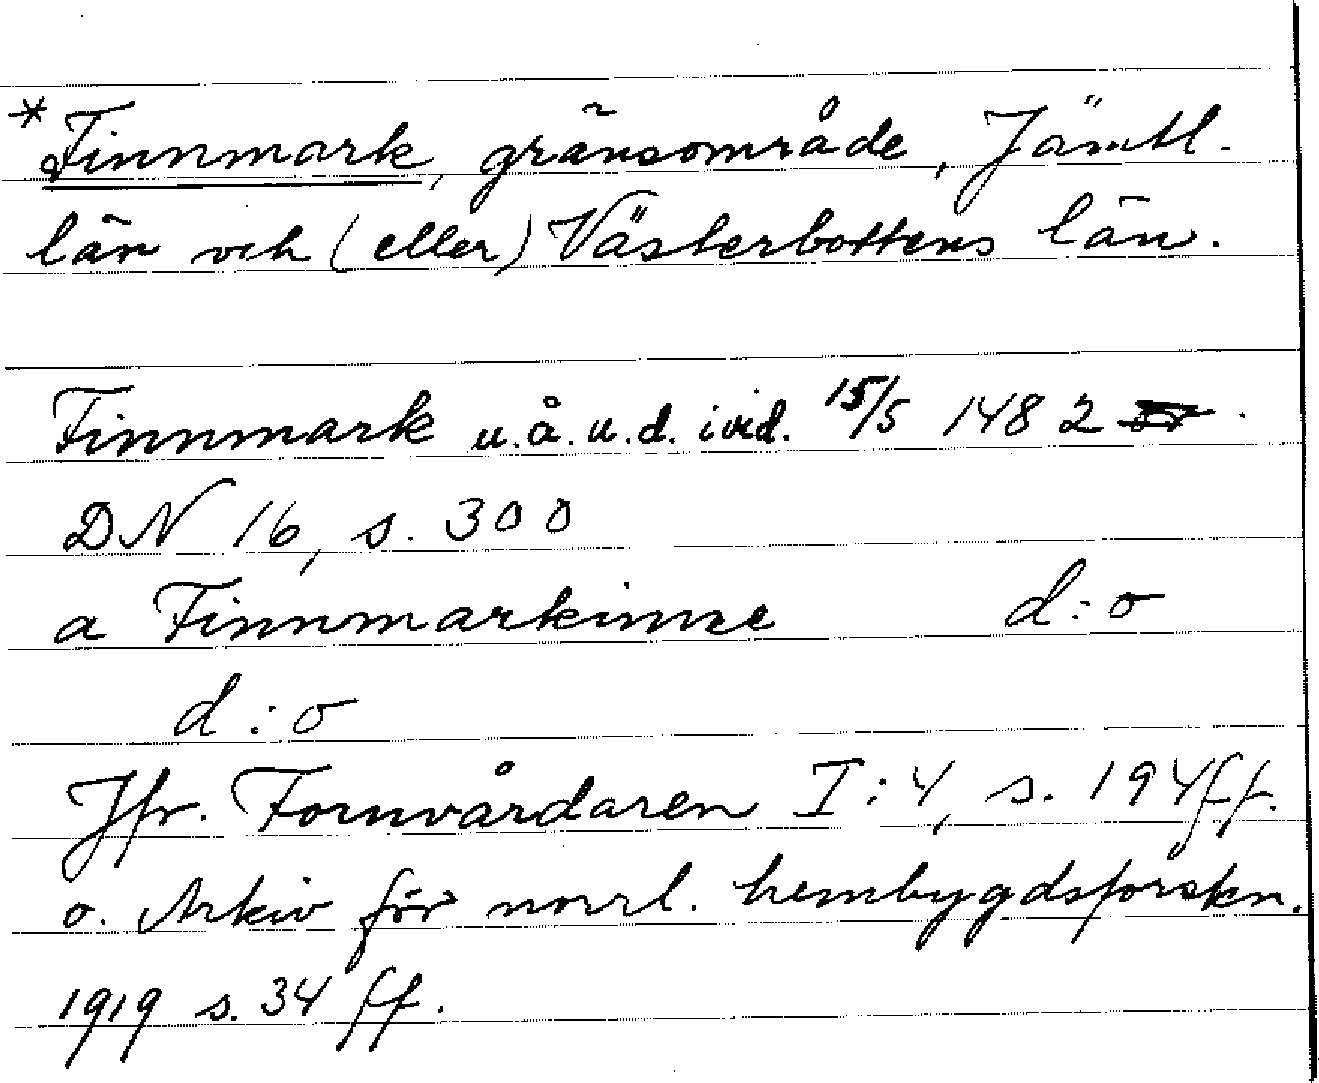 *Finnmark, gränsområde, Jämtl.
län och (eller) Västerbottens län.
Finnmark u.å.u.d. i vid. 15/5 1482
DN 16, s. 300
a Finnmarkinne d:o
d:o
Jfr. Fornvårdaren I:4, s. 194 ff.
o. Arkiv för norrl. hembygdsforskn.
1919 s. 34 ff.